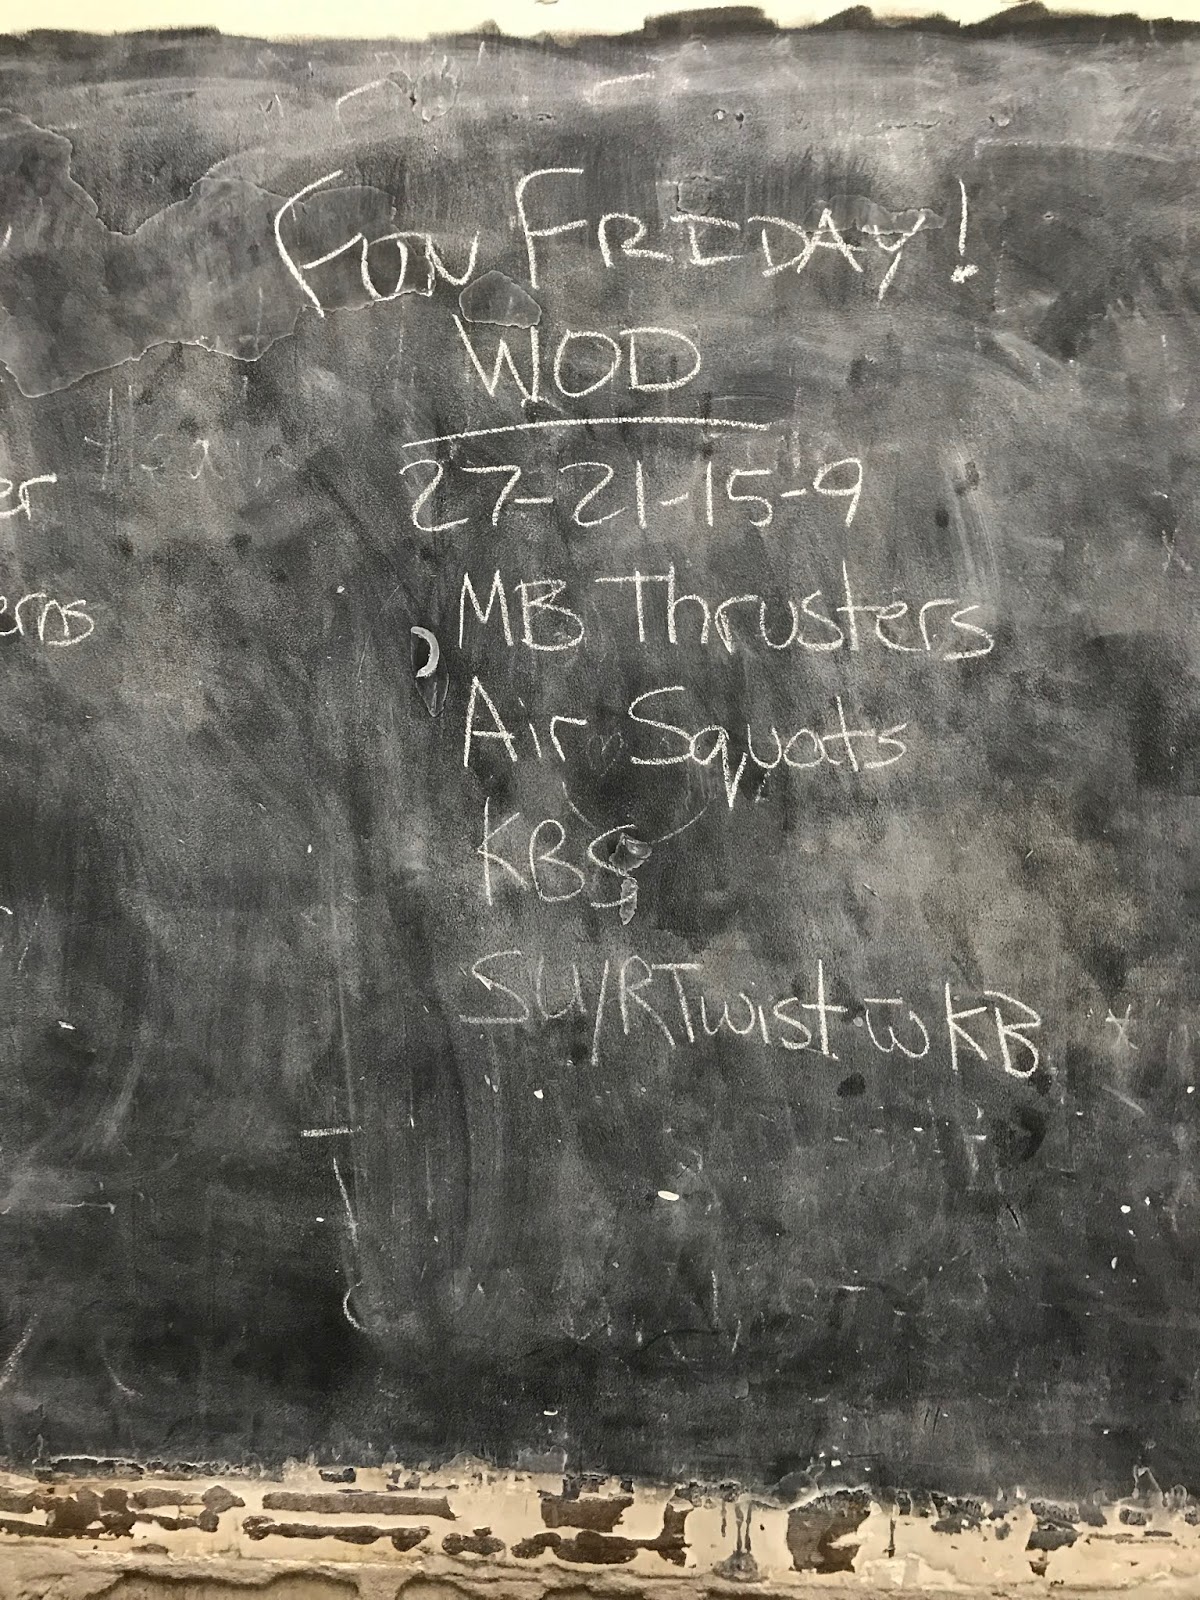 FUN FRIDAY!
WOD
27-21-15-9
er
MB Thrusters
erns
Air Squats
KBS
SU/RTwist w̄ KB